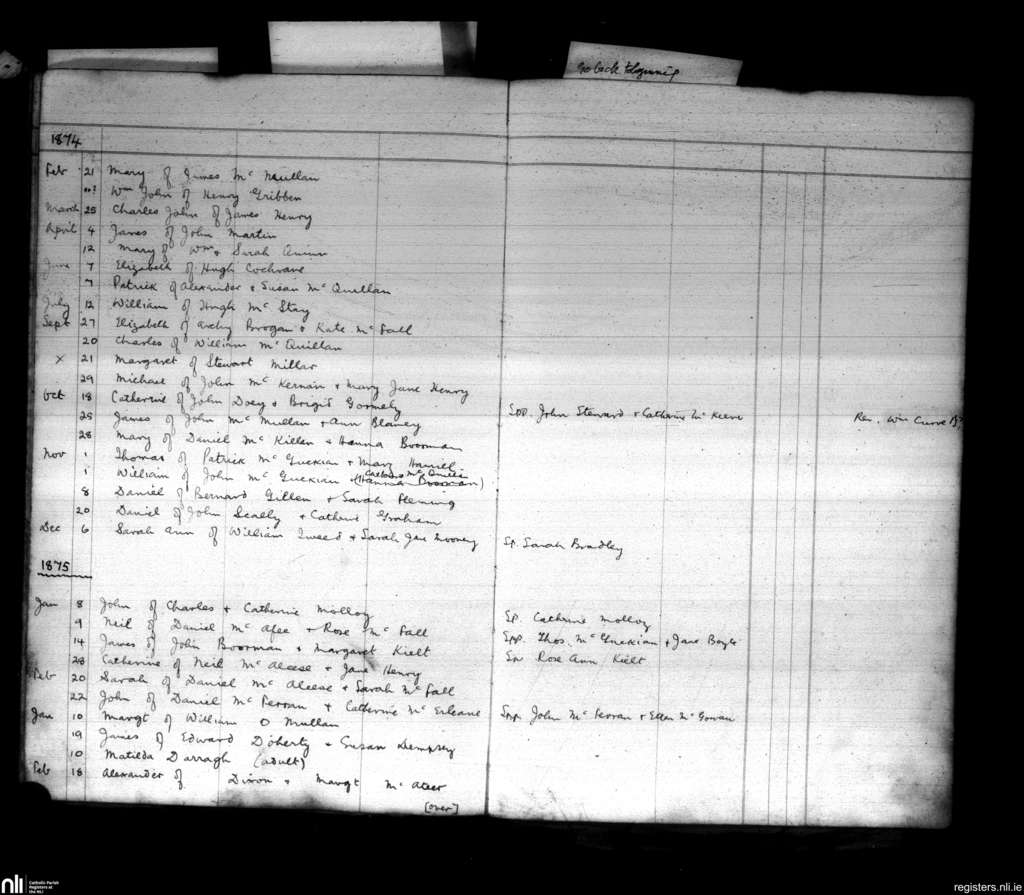 Go back to beginning
1874
Feb 21 Mary of James Mc Mullan
Wm John of Henry Gribben
March 25 Charles John of James Henry
April 4 James of John Martin
12 Mary of Wm & Sarah Quinn
June 7 Elizabeth of Hugh Cochrane
7 Patrick of Alexander & Susan Mc Quillan
July 12 William of Hugh Mc Stay
Sept 27 Elizabeth of Archy Brogan & Kate Mc Fall
20 Charles of William Mc Quillan
x 21 Margaret of Stewart Millar
29 Michael of John Mc Kernan & Mary Jane Henry
Oct 18 Catherine of John Doey & Brigid Gormely
25 James of John Mc Mullan & Ann Blaney Spp. John Steward & Catherine Mc Keeve Rev. Wm Curoe
28 Mary of Daniel Mc Killen & Hanna Boorman
Nov 1 Thomas of Patrick Mc Guckian & Mary Hamill
1 William of John Mc Guckian (Hannah Boorman)
8 Daniel of Bernard Gillen & Sarah Fleming
20 Daniel of John Scally & Catherine Graham
Dec 6 Sarah Ann of William Tweed & Sarah Jane Mooney Sp. Sarah Bradley
1875
Jan 8 John of Charles & Catherine Molloy Sp. Catherine Molloy
9 Neil of Daniel Mc Afee & Rose Mc Fall Spp. Thos. Mc Guckian & Jane Boyle
14 James of John Boorman & Margaret Kielt Sp Rose Ann Kielt
28 Catherine of Neil Mc Aleese & Jane Henry
Feb 20 Sarah of Daniel Mc Aleese & Sarah Mc Fall
22 John of Daniel Mc Ferran & Catherine Mc Erleane Spp. John Mc Ferran & Ellen Mc Gowan
Jan 10 Margt of William O Mullan
19 James of Edward Doherty & Susan Dempsey
10 Matilda Darragh (adult)
Feb 18 Alexander of Dixon & Margt Mc Ateer
(over)
nli Catholic Parish Registers at the NLI
registers.nli.ie